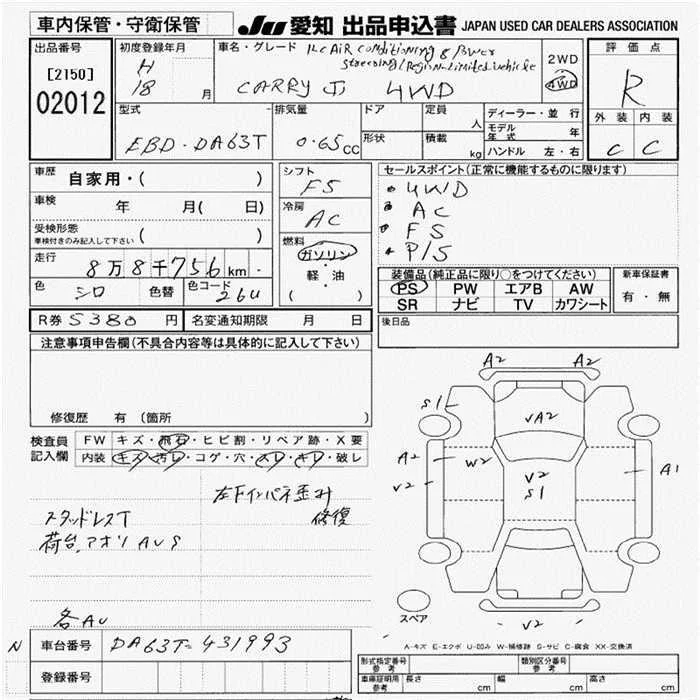 車内保管・守衛保管 JU 愛知 出品申込書 JAPAN USED CAR DEALERS ASSOCIATION
出品番号 初度登録年月 車名・グレード
KC AIR Conditioning & Power
[2150] H 2WD 評価点
02012 18 月 CARRY 4WD 4WD R
型式 排気量 ドア 定員 人 ディーラー・並行 外装 内装
EBD・DA63T 0.65cc 形状 積載 kg モデル年式 年 C C
ハンドル 左・右
車歴 自家用・( ) シフト F5 セールスポイント(正常に機能するものに限ります)
車検 年 月( 日) 冷房 AC 4WD
受検形態 ( ) AC
車検付きのみ記入して下さい F5
走行 8万8千756km 燃料 ガソリン・軽・油 ( ) P/S
色 シロ 色替 色コード 26U 装備品(純正品に限り○をつけてください) 新車保証書
PS PW エアB AW 有・無
SR ナビ TV カワシート
R券 5380 円 名変通知期限 月 日 後日品
注意事項申告欄(不具合内容等は具体的に記入して下さい)
修復歴 有 (箇所 )
検査員記入欄 FW キズ・飛石・ヒビ割・リペア跡・X要
内装 キズ・汚レ・コゲ・穴・スレ・キレ・破レ
左Fインパネ歪ミ
スタッドレスT 修復
荷台.アオリ AUS
各AU
A2 A2
S1 VA2
A2 W2 V2 A1
V2 S1
スペア V2
A-キズ E-エクボ U-凹み W-補修跡 S-サビ C-腐食 XX-交換済
N 車台番号 DA63T-431993
登録番号
型式指定番号 参考 類別区分番号 参考
車庫証明用 参考 長さ cm 幅 cm 高さ cm